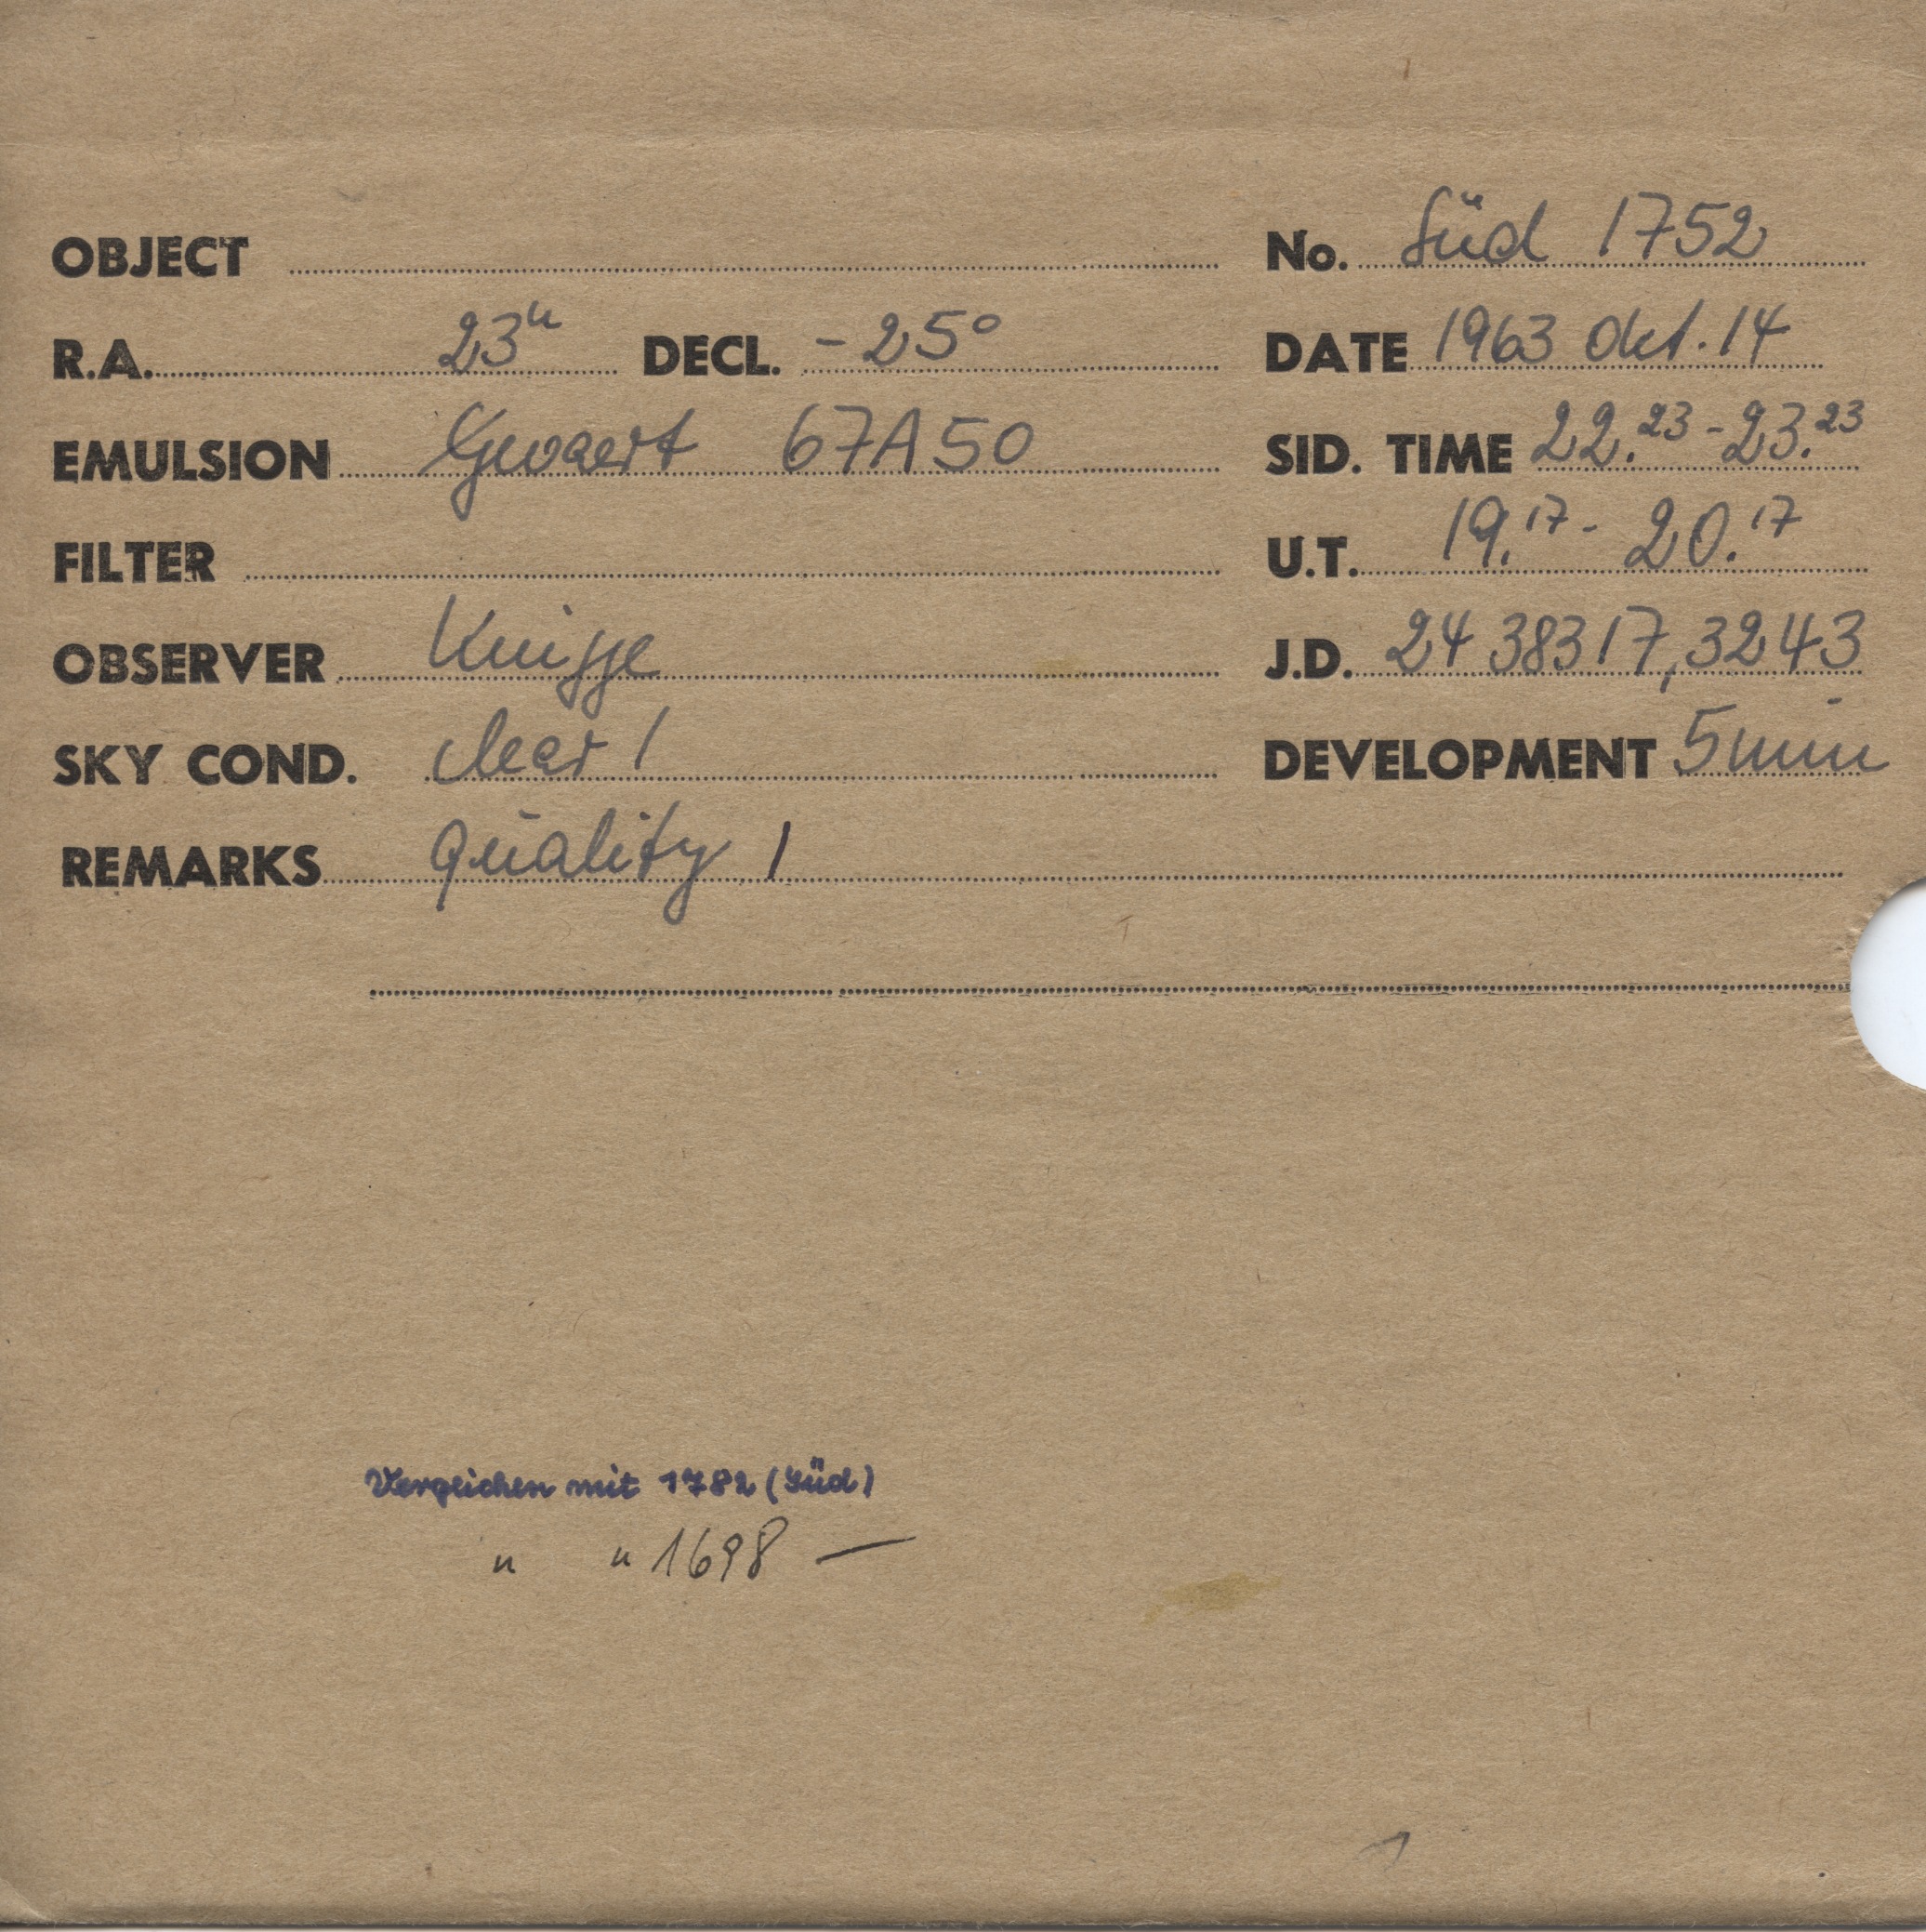 OBJECT No. Süd 1752
R.A. 23h DECL. -25° DATE 1963 Okt. 14
EMULSION Gevaert 67A50 SID. TIME 22.23 - 23.23
FILTER U.T. 19.17 - 20.17
OBSERVER Knigge J.D. 24 38317,3243
SKY COND. clear 1 DEVELOPMENT 5 min
REMARKS quality 1
Verglichen mit 1782 (Süd)
" " 1698 —